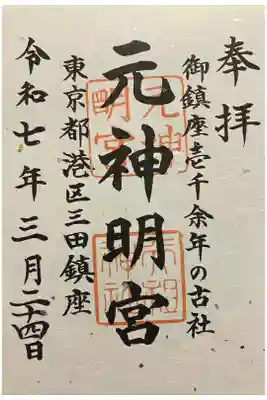 奉拝
御鎮座壱千余年の古社
元神明宮
東京都港区三田鎮座
令和七年三月二十四日
元神明宮